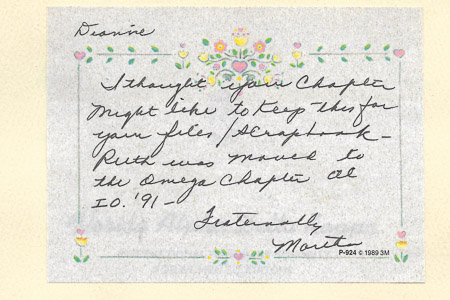 Dianne
I thought your Chapter
Might like to keep this for
your files/Scrapbook—
Ruth was moved to
the Omega Chapter
I O. '91—
Fraternally
Martha
P-924 © 1989 3M